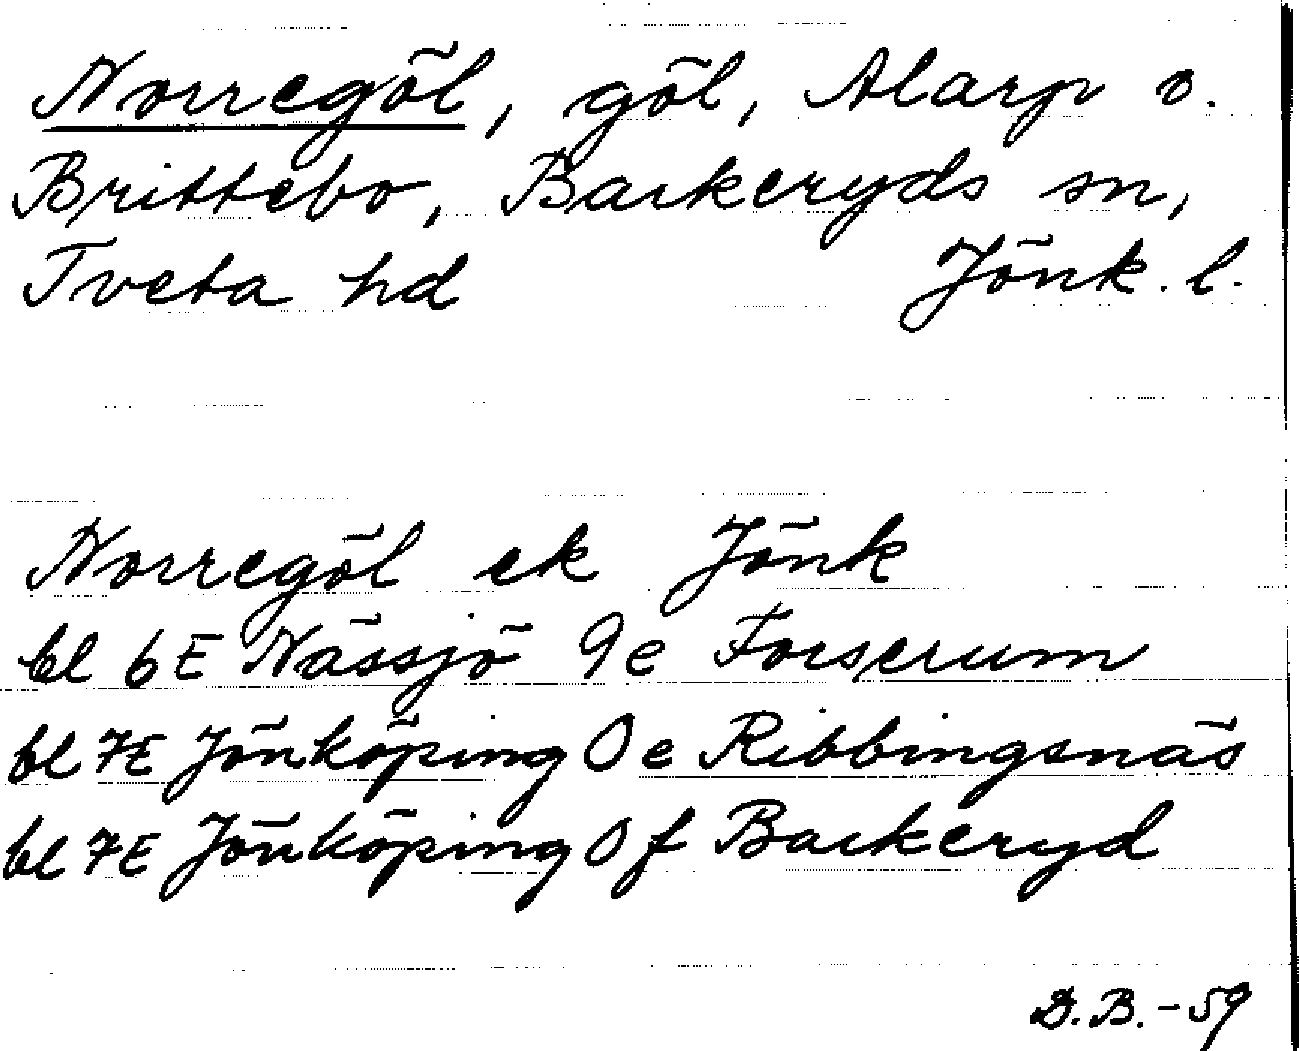 Norregöl, göl, Alarp o.
Brittebo, Barkeryds sn,
Tveta hd Jönk. l.
Norregöl ek Jönk
bl 6E Nässjö 9e Forserum
bl 7E Jönköping 0e Ribbingsnäs
bl 7E Jönköping 0f Barkeryd
B.B. - 59